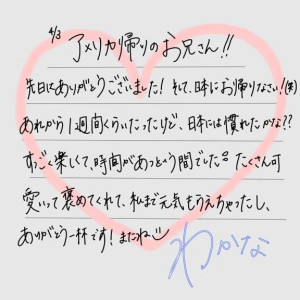 4/3
アメリカ帰りのお兄さん!!
先日はありがとうございました! そして、日本にお帰りなさい!(笑)
あれから1週間くらいたったけど、日本には慣れたかな??
すごく楽しくて、時間があっという間でした。たくさん可
愛いって褒めてくれて、私まで元気もらえちゃったし、
ありがとう一杯です! またね
わかな